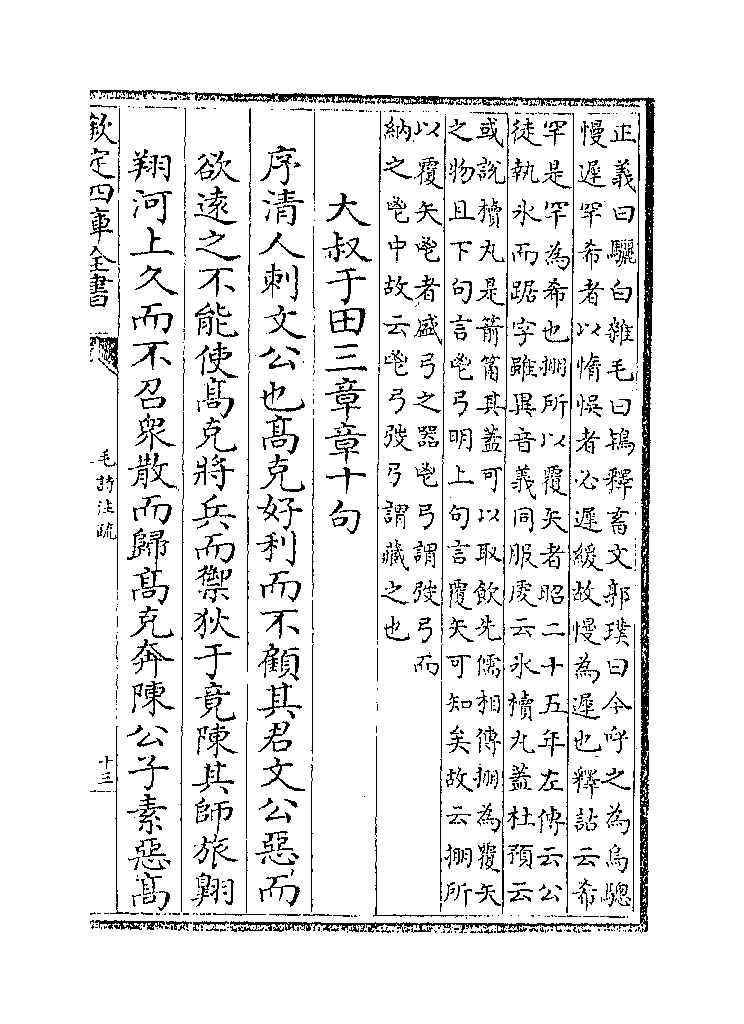 正義曰驪白雜毛曰鴇釋畜文郭璞曰今呼之為烏驄
慢遲罕希者以惰悞者必遲緩故慢為遲也釋詁云希
罕是罕為希也掤所以覆矢者昭二十五年左傳云公
徒執氷而踞字雖異音義同服虔云氷櫝丸蓋杜預云
或說櫝丸是箭筩其蓋可以取飲先儒相傳掤為覆矢
之物且下句言鬯弓明上句言覆矢可知矣故云掤所
以覆矢鬯者盛弓之器鬯弓謂弢弓而
納之鬯中故云鬯弓弢弓謂藏之也
大叔于田三章章十句
序清人刺文公也髙克好利而不顧其君文公惡而
欲遠之不能使髙克將兵而禦狄于竟陳其師旅翺
翔河上久而不召衆散而歸髙克奔陳公子素惡髙
欽定四庫全書
毛詩注疏
十三